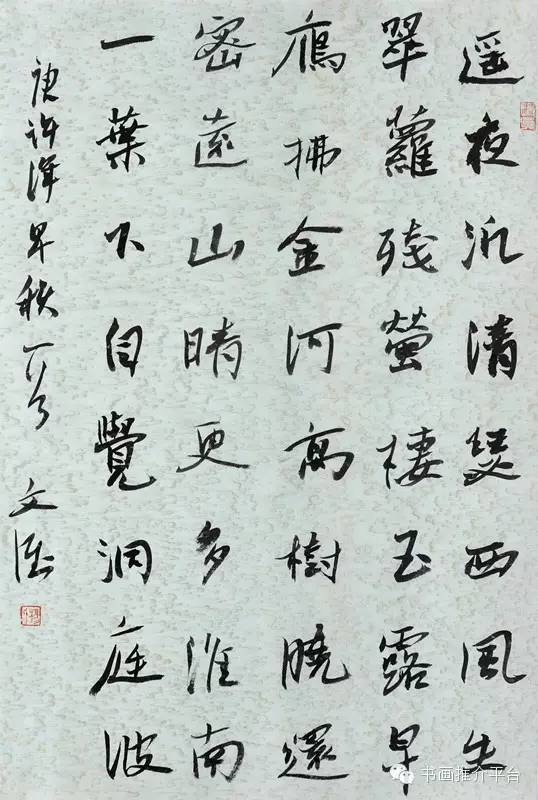 遥夜汎清瑟西風生
翠蘿殘螢棲玉露早
鴈拂金河高樹曉還
密遠山晴更多淮南
一葉下自覺洞庭波
唐許渾早秋一首 文
书画推介平台